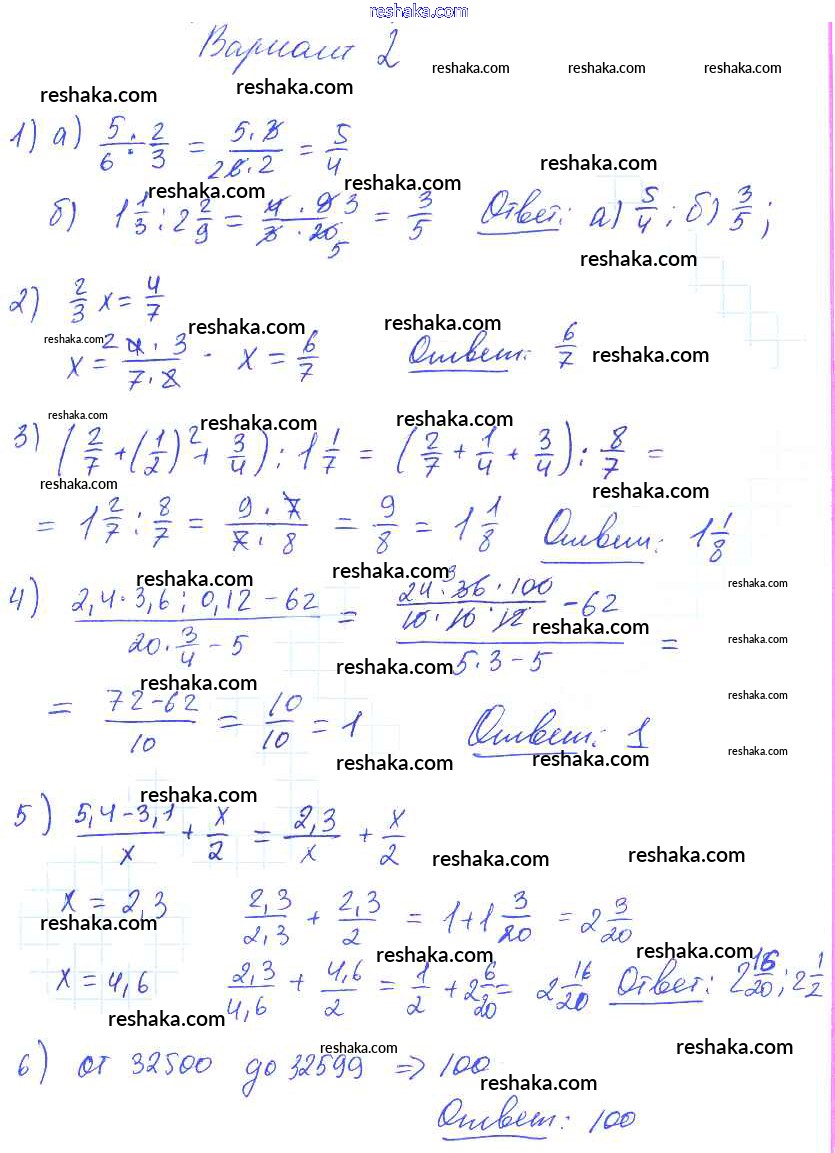 reshaka.com
Вариант 2
reshaka.com reshaka.com reshaka.com
reshaka.com reshaka.com
1) а) 5/6 : 2/3 = 5·3/26·2 = 5/4
reshaka.com
reshaka.com
б) 1 1/3 : 2 2/9 = 4·9 3/3·20 5 = 3/5 Ответ: а) 5/4; б) 3/5;
reshaka.com
2) 2/3 x = 4/7
reshaka.com reshaka.com reshaka.com
x = 2 4·3/7·2 . x = 6/7 Ответ: 6/7 reshaka.com
reshaka.com reshaka.com reshaka.com
3) (2/7 + (1/2)² + 3/4) : 1 1/7 = (2/7 + 1/4 + 3/4) : 8/7 =
reshaka.com reshaka.com
= 1 2/7 : 8/7 = 9·7/7·8 = 9/8 = 1 1/8 Ответ: 1 1/8
reshaka.com reshaka.com reshaka.com
4) 2,4·3,6 : 0,12 - 62/20·3/4 - 5 = 24·36 3·100/10·10·12 - 62/5·3 - 5 =
reshaka.com reshaka.com
reshaka.com
= 72-62/10 = 10/10 = 1 Ответ: 1
reshaka.com reshaka.com
reshaka.com reshaka.com reshaka.com
reshaka.com
5) 5,4-3,1/x + x/2 = 2,3/x + x/2
reshaka.com reshaka.com
x = 2,3 2,3/2,3 + 2,3/2 = 1 + 1 3/20 = 2 3/20
reshaka.com reshaka.com reshaka.com
x = 4,6 2,3/4,6 + 4,6/2 = 1/2 + 2 6/20 = 2 16/20 Ответ: 2 15/20; 2 1/2
reshaka.com
6) от 32500 до 32599 => 100
reshaka.com reshaka.com
reshaka.com
Ответ: 100